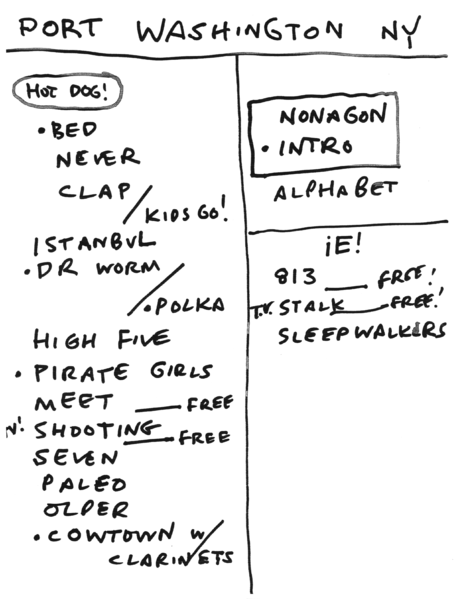 PORT WASHINGTON NY
HOT DOG!
• BED
NEVER
CLAP /
KIDS GO!
ISTANBUL
• DR WORM /
• POLKA
HIGH FIVE
• PIRATE GIRLS
MEET — FREE
N! SHOOTING — FREE
SEVEN
PALEO
OLDER
• COWTOWN W/
CLARINETS
NONAGON
• INTRO
ALPHABET
¡E!
813 — FREE!
T.V. STALK — FREE!
SLEEPWALKERS